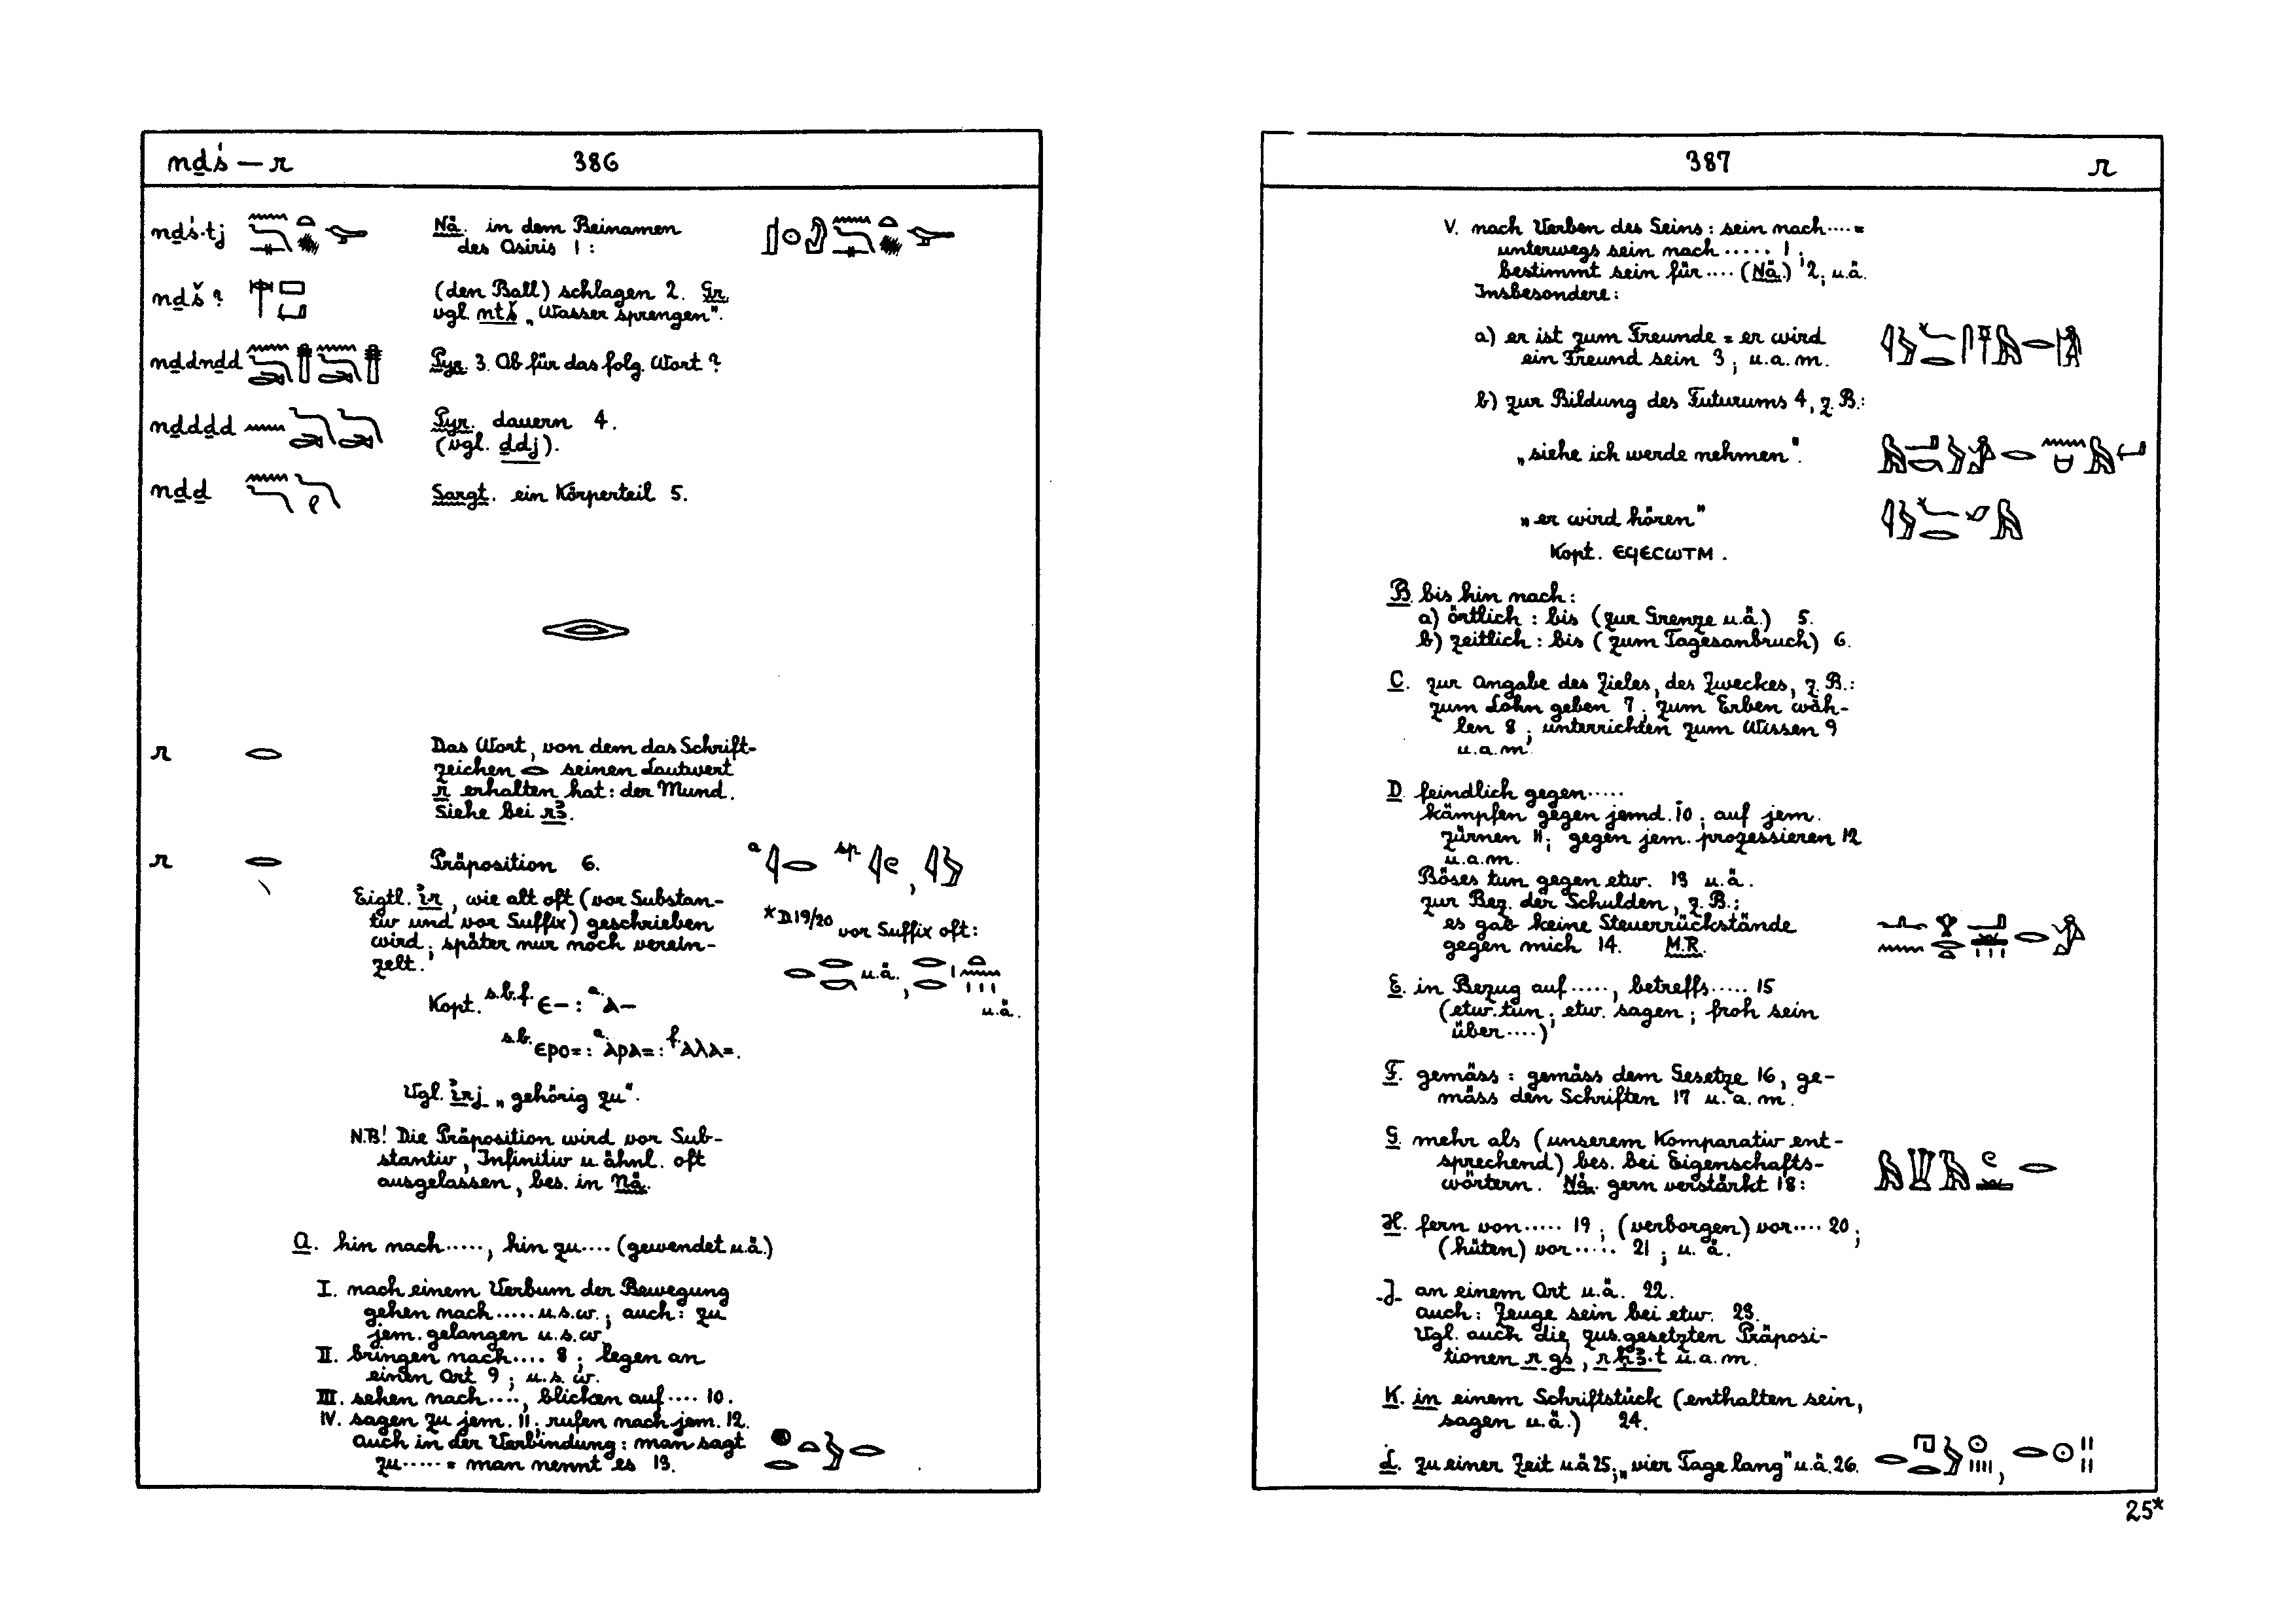 nḏś — r 386
nḏś·tj 𓈖𓆓𓊃𓏏𓅪 Nä. in dem Beinamen
des Osiris 1:
nḏš? (den Ball) schlagen 2. Gr.
vgl. ntš „Wasser sprengen".
nḏdnḏd Pyr. 3. Ob für das folg. Wort?
nḏdḏd Pyr. dauern 4.
(vgl. ḏdj).
nḏḏ Sargt. ein Körperteil 5.
r 𓂋 Das Wort, von dem das Schrift-
zeichen 𓂋 seinen Lautwert
r erhalten hat: der Mund.
Siehe bei rꜣ.
r 𓂋 Präposition 6. a 𓇋𓂋 sp 𓇋𓏲, 𓇋𓅱
Eigtl. ir, wie alt oft (vor Substan-
tiv und vor Suffix) geschrieben
wird; später nur noch verein-
zelt.
*D.19/20 vor Suffix oft:
𓂋𓂋𓎡 u.ä.,
u.ä.
Kopt. s.b.f. ⲉ– : a. ⲁ–
s.b. ⲉⲣⲟ= : a. ⲁⲣⲁ= : f. ⲁⲗⲁ=.
Vgl. irj „gehörig zu".
N.B! Die Präposition wird vor Sub-
stantiv, Infinitiv u. ähnl. oft
ausgelassen, bes. in Nä.
A. hin nach ....., hin zu .... (gewendet u.ä.)
I. nach einem Verbum der Bewegung
gehen nach ..... u.s.w.; auch: zu
jem. gelangen u.s.w.
II. bringen nach .... 8; legen an
einen Ort 9; u.s.w.
III. sehen nach ...., blicken auf .... 10.
IV. sagen zu jem. 11; rufen nach jem. 12.
auch in der Verbindung: man sagt
zu ..... = man nennt es 13. 𓐍𓂋𓏏𓅱𓂋
387 r
V. nach Verben des Seins: sein nach .... =
unterwegs sein nach ..... 1;
bestimmt sein für .... (Nä.) 2; u.ä.
Insbesondere:
a) er ist zum Freunde = er wird
ein Freund sein 3; u.a.m.
b) zur Bildung des Futurums 4, z.B.:
„siehe ich werde nehmen".
„er wird hören" 𓇋𓅱𓆑𓂋𓄔𓅓
Kopt. ⲉϥⲉⲥⲱⲧⲙ.
B. bis hin nach:
a) örtlich: bis (zur Grenze u.ä.) 5.
b) zeitlich: bis (zum Tagesanbruch) 6.
C. zur Angabe des Zieles, des Zweckes, z.B.:
zum Lohn geben 7; zum Erben wäh-
len 8; unterrichten zum Wissen 9
u.a.m.
D. feindlich gegen .....
kämpfen gegen jemd. 10; auf jem.
zürnen 11; gegen jem. prozessieren 12
u.a.m.
Böses tun gegen etw. 13 u.ä.
zur Bez. der Schulden, z.B.:
es gab keine Steuerrückstände
gegen mich 14. M.R.
E. in Bezug auf ....., betreffs ..... 15
(etw. tun; etw. sagen; froh sein
über ....)
F. gemäss: gemäss dem Gesetze 16, ge-
mäss den Schriften 17 u.a.m.
G. mehr als (unserem Komparativ ent-
sprechend) bes. bei Eigenschafts-
wörtern. Nä. gern verstärkt 18:
H. fern von ..... 19; (verborgen) vor .... 20;
(hüten) vor ..... 21; u.ä.
J. an einem Ort u.ä. 22.
auch: Zeuge sein bei etw. 23.
Vgl. auch die zus.gesetzten Präposi-
tionen r gs, r ḥꜣ·t u.a.m.
K. in einem Schriftstück (enthalten sein,
sagen u.ä.) 24.
L. zu einer Zeit u.ä 25; „vier Tage lang" u.ä. 26.
25*